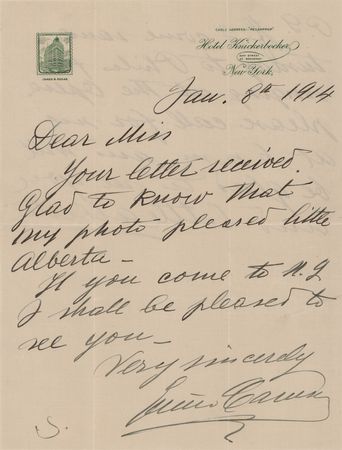 CABLE ADDRESS
Hotel Knickerbocker,
42ND STREET
AT BROADWAY
New York.
JAMES B. REGAN
Jan. 8th 1914
Dear Miss
Your letter received.
Glad to know that
my photo pleased little
Alberta –
If you come to N.Y
I shall be pleased to
see you –
Very sincerely
Enrico Caruso